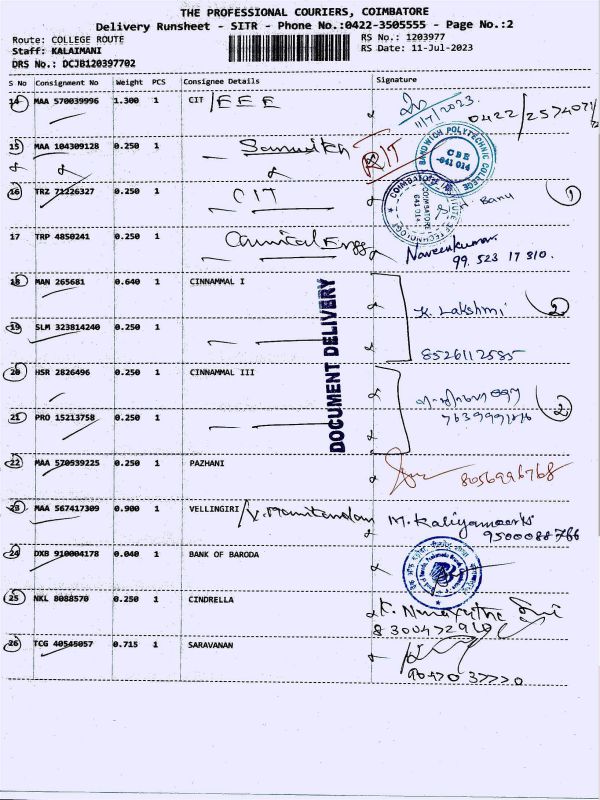 THE PROFESSIONAL COURIERS, COIMBATORE
Delivery Runsheet - SITR - Phone No.:0422-3505555 - Page No.:2
Route: COLLEGE ROUTE RS No.: 1203977
Staff: KALAIMANI RS Date: 11-Jul-2023
DRS No.: DCJB120397702
S No Consignment No Weight PCS Consignee Details Signature
14 MAA 570039996 1.300 1 CIT /EEE 11/7/2023. 0422/257407
15 MAA 104309128 0.250 1 RIT
BANDWIDH POLYTECHNIC COLLEGE CBE -641 014
16 TRZ 71226327 0.250 1 CIT Banu 1
COIMBATORE INSTITUTE OF TECHNOLOGY COIMBATORE 641 014
17 TRP 4850241 0.250 1 Chemical Engg Naveenkumar
99. 523 17 810.
18 MAN 265681 0.640 1 CINNAMMAL I K. Lakshmi 2
19 SLM 323814240 0.250 1 8526112585
DOCUMENT DELIVERY
20 HSR 2826496 0.250 1 CINNAMMAL III 2
21 PRO 15213758 0.250 1
22 MAA 570539225 0.250 1 PAZHANI 8056996768
23 MAA 567417309 0.900 1 VELLINGIRI M. Kaliyamoorthi
9500088766
24 DXB 910004178 0.040 1 BANK OF BARODA
25 NKL 8088570 0.250 1 CINDRELLA K.
8300472910
26 TCG 40545057 0.715 1 SARAVANAN